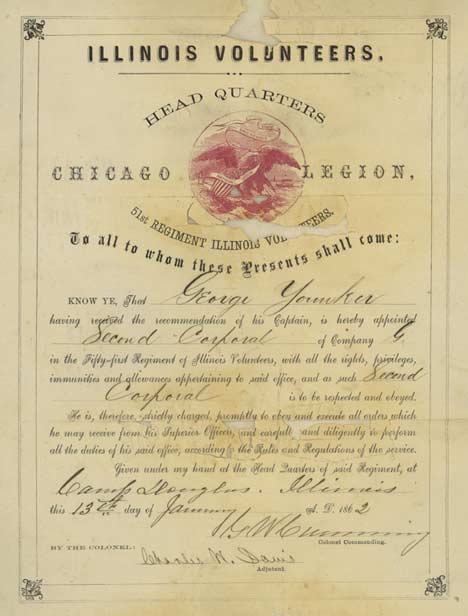 ILLINOIS VOLUNTEERS,
HEAD QUARTERS
CHICAGO LEGION,
51st REGIMENT ILLINOIS VOLUNTEERS.
To all to whom these Presents shall come:
KNOW YE, That George Younker
having received the recommendation of his Captain, is hereby appointed
Second Corporal of Company G
in the Fifty-first Regiment of Illinois Volunteers, with all the rights, privileges,
immunities and allowances appertaining to said office, and as such Second
Corporal is to be respected and obeyed.
He is, therefore, strictly charged, promptly to obey and execute all orders which
he may receive from his Superior Officers, and carefully and diligently to perform
all the duties of his said office, according to the Rules and Regulations of the service.
Given under my hand at the Head Quarters of said Regiment, at
Camp Douglas. Illinois
this 13th day of January A. D. 1862
G W Cumming
BY THE COLONEL: Colonel Commanding.
Charles W. Davis
Adjutant.